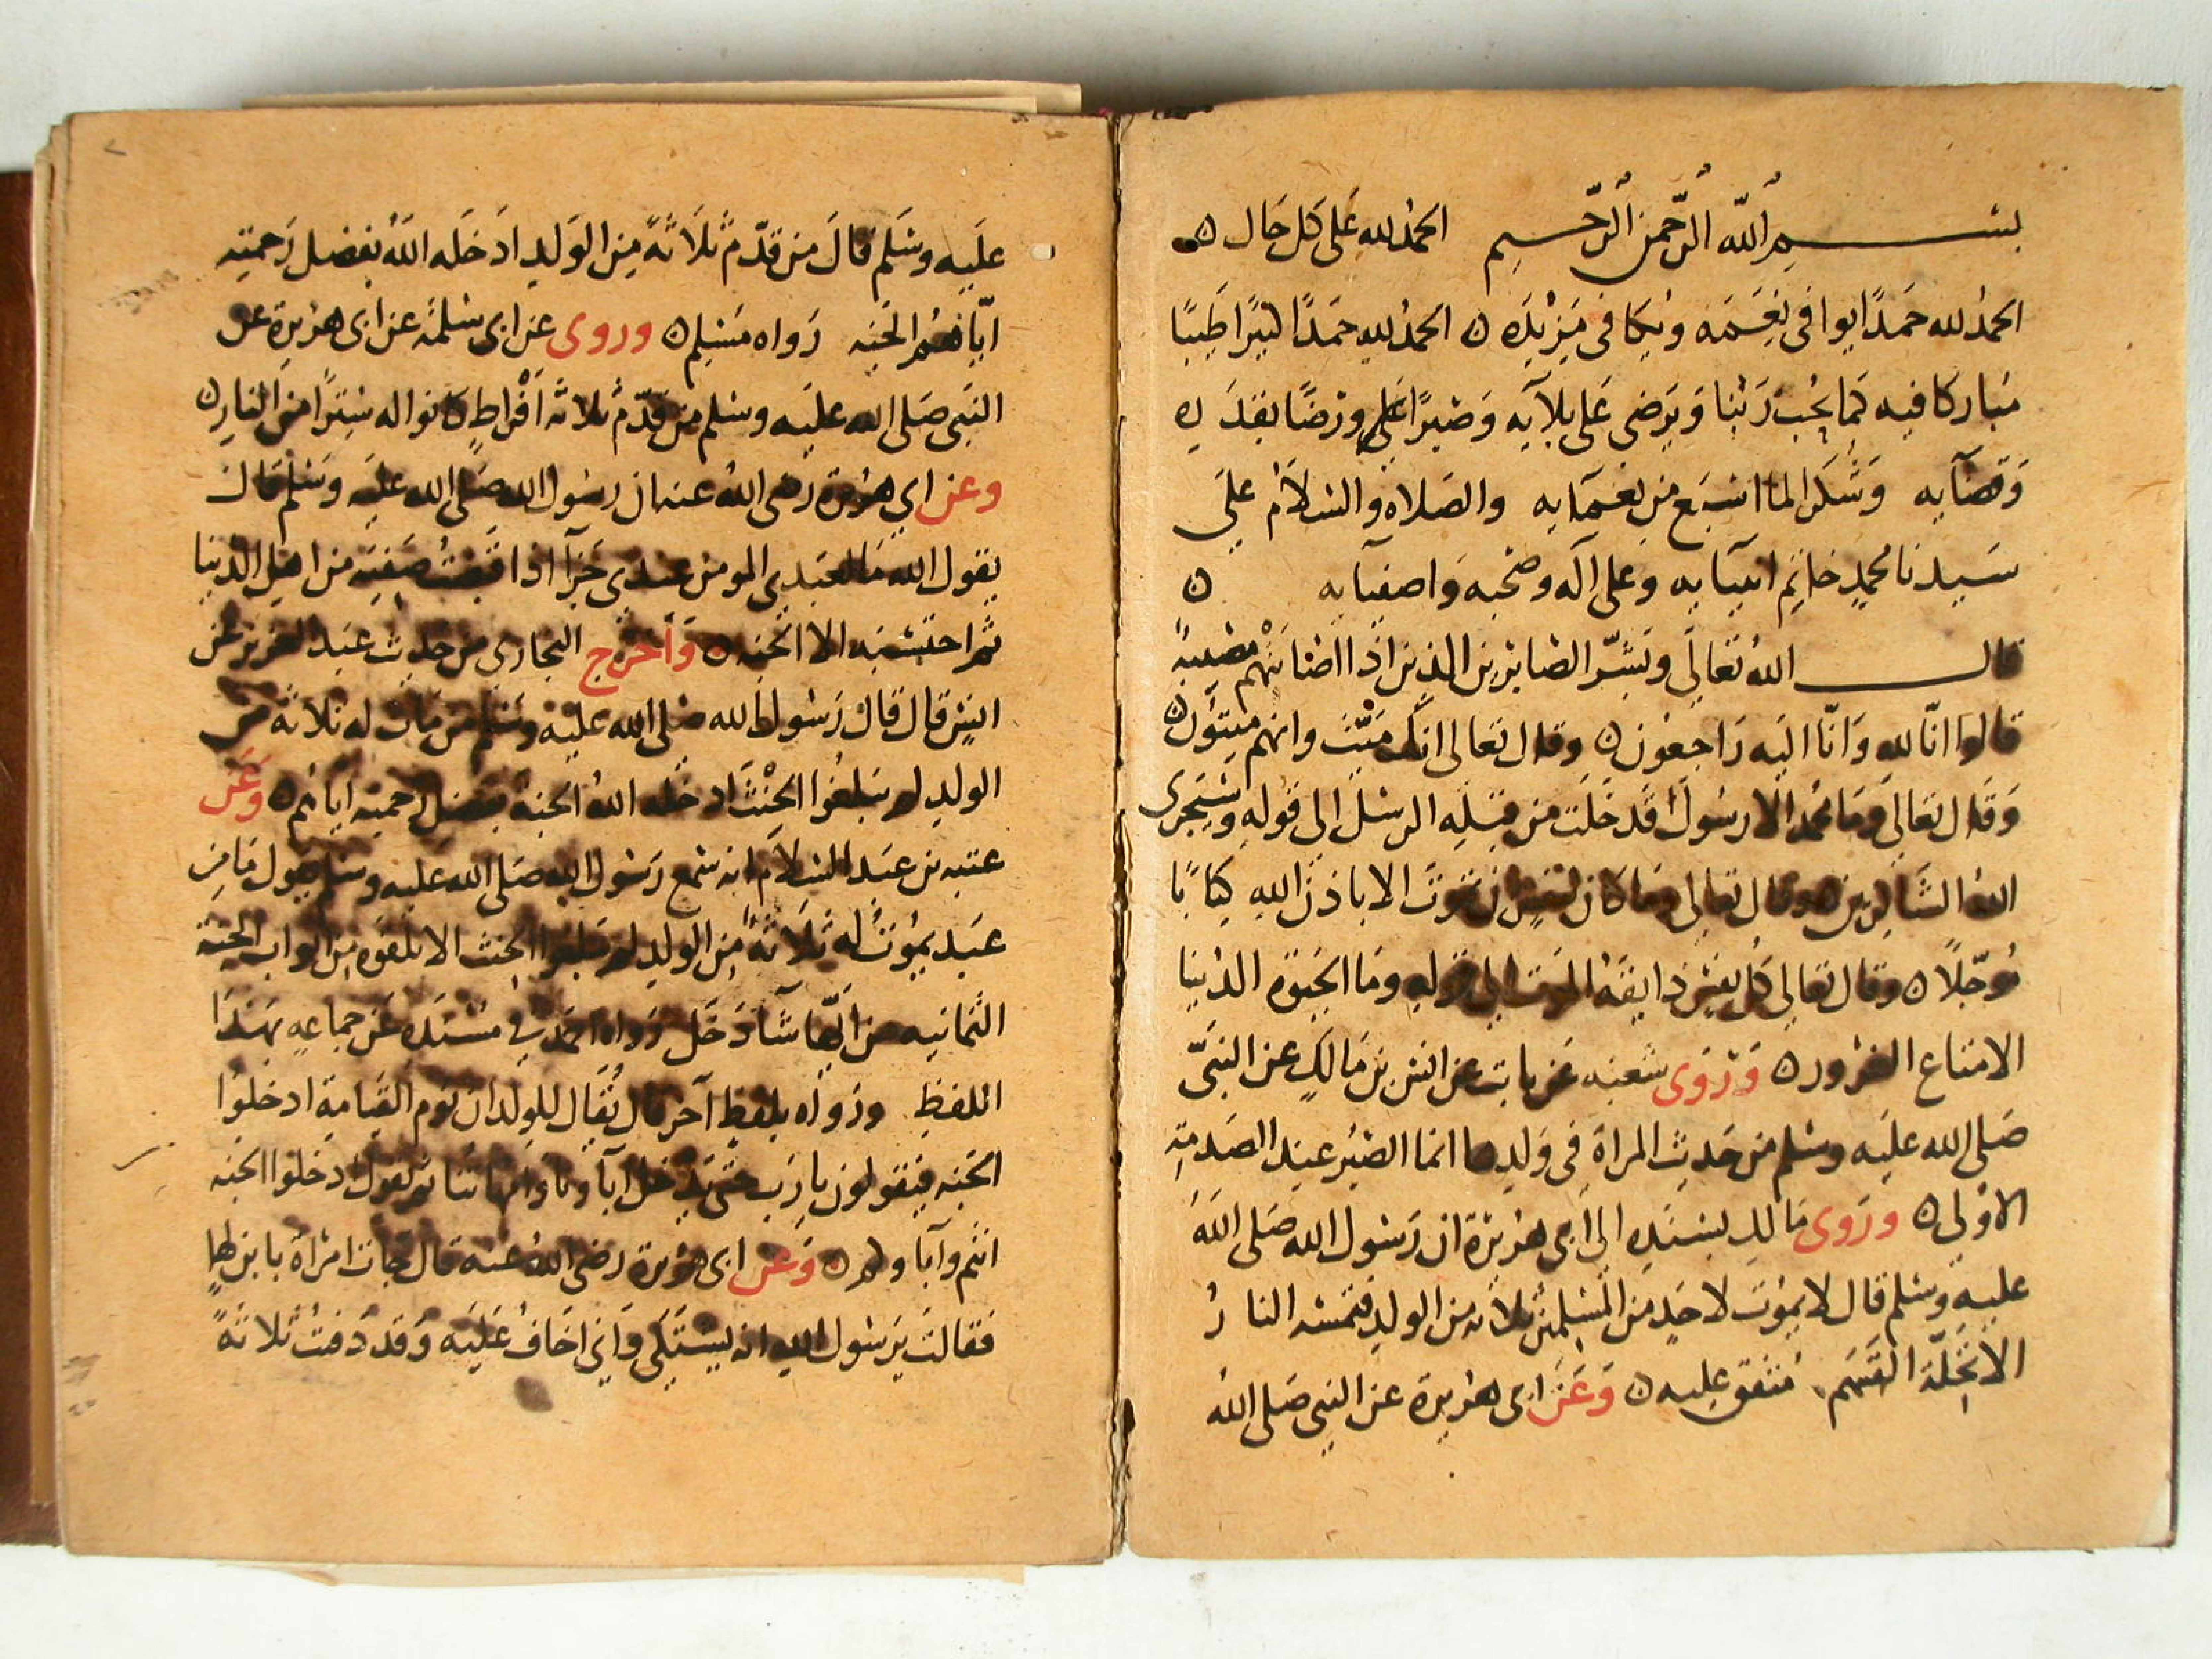 بسم الله الرحمن الرحيم الحمد لله على كل حال ن
الحمد لله حمدا يوافى نعمه ويكافى مزيده ن الحمد لله حمدا كثيرا طيبا
مباركا فيه كما يحب ربنا ويرضى على بلآيه وصبرا على ورضا بقدره
وقضآيه وشكرا لما اسبغ من نعمآيه والصلاه والسلام على
سيدنا محمد خاتم انبيآيه وعلى آله وصحبه واصفيآيه ن
قال الله تعالى وبشر الصابرين الذين اذا اصابتهم مصيبة
قالوا انا لله وانا اليه راجعون ن وقال تعالى انك ميت وانهم ميتون ن
وقال تعالى وما محمد الا رسول قد خلت من قبله الرسل الى قوله وسيجزى
الله الشاكرين ن وقال تعالى وما كان لنفس ان تموت الا باذن الله كتابا
موجلا ن وقال تعالى كل نفس ذايقة الموت الى قوله وما الحيوة الدنيا
الا متاع الغرور ن وروى شعبه عن ثابت عن انس بن مالك عن النبى
صلى الله عليه وسلم من حديث المراة فى ولدها انما الصبر عند الصدمة
الاولى ن وروى مالك بسنده الى ابى هريرة ان رسول الله صلى الله
عليه وسلم قال لا يموت لاحد من المسلمين ثلاثه من الولد فتمسه النار
الا تحلة القسم متفق عليه ن وعن ابى هريرة عن النبى صلى الله
عليه وسلم قال من قدم ثلاثة من الولد ادخله الله بفضل رحمته
اياهم الجنه رواه مسلم ن وروى عن ابى سلمه عن ابى هريرة عن
النبى صلى الله عليه وسلم من قدم ثلاثه افراط كانوا له سترا من النار ن
وعن ابي هريرة رضى الله عنه ان رسول الله صلى الله عليه وسلم قال
يقول الله ما لعبدى المومن عندى جزآ اذا قبضت صفيه من اهل الدنيا
ثم احتسبه الا الجنه ن واخرج البخارى من حديث عبد العزيز عن
انس قال قال رسول الله صلى الله عليه وسلم من مات له ثلاثة من
الولد لم يبلغوا الحنث ادخله الله الجنة بفضل رحمته اياهم ن وعن
عتبه بن عبد السلام انه سمع رسول الله صلى الله عليه وسلم يقول ما من
عبد يموت له ثلاثة من الولد لم يبلغوا الحنث الا تلقوه من ابواب الجنة
الثمانيه من ايها شآ دخل رواه احمد في مسنده عن جماعه بهذا
اللفظ ورواه بلفظ آخر قال يقال للولدان يوم القيامة ادخلوا
الجنه فيقولون يا رب حتى يدخل اباونا وامهاتنا ثم يقول ادخلوا الجنه
انتم وآباوكم ن وعن ابى هريرة رضى الله عنه قال جات امراة بابن لها
فقالت يرسول الله انه يشتكى وانى اخاف عليه وقد دفنت ثلاثة